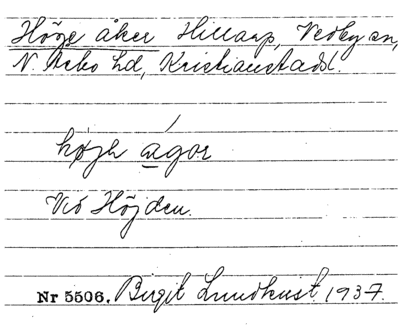 Höge åker Hillarp, Vedby sn,
N. Åsbo hd, Kristianstads l.
højh ågor
Vid Höjden.
Nr 5506. Birgit Lundkvist 1937.